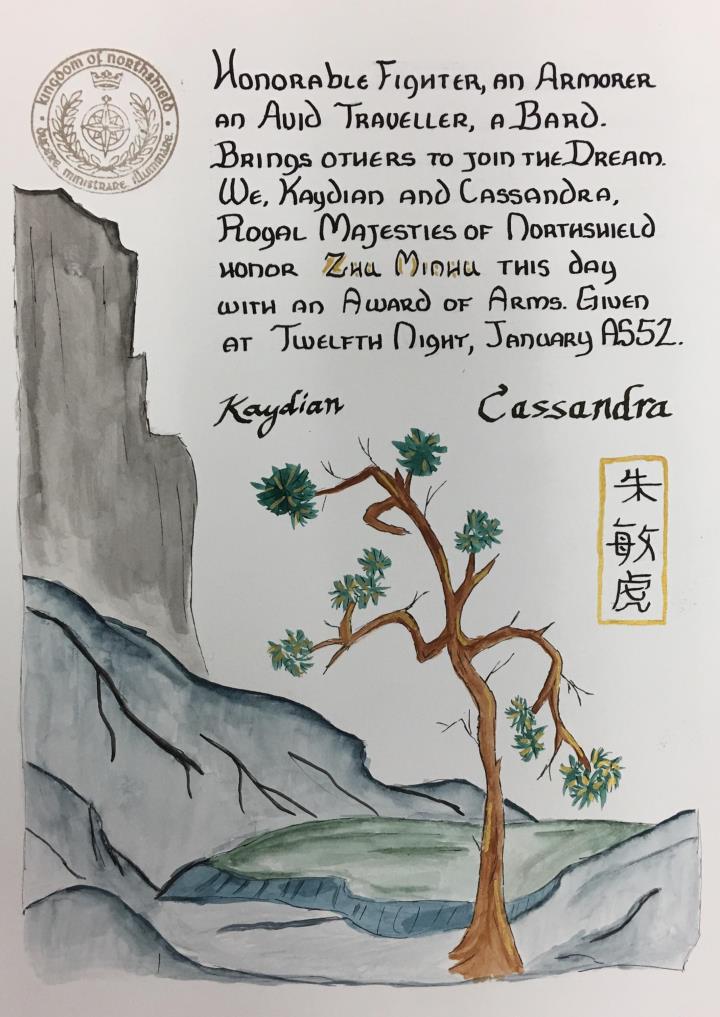 kingdom of northshield
ducere ministrare illuminare
Honorable Fighter, an Armorer
an Avid Traveller, a Bard.
Brings others to join the Dream.
We, Kaydian and Cassandra,
Royal Majesties of Northshield
honor Zhu Minhu this day
with an Award of Arms. Given
at Twelfth Night, January AS52.
Kaydian Cassandra
朱
敏
虎